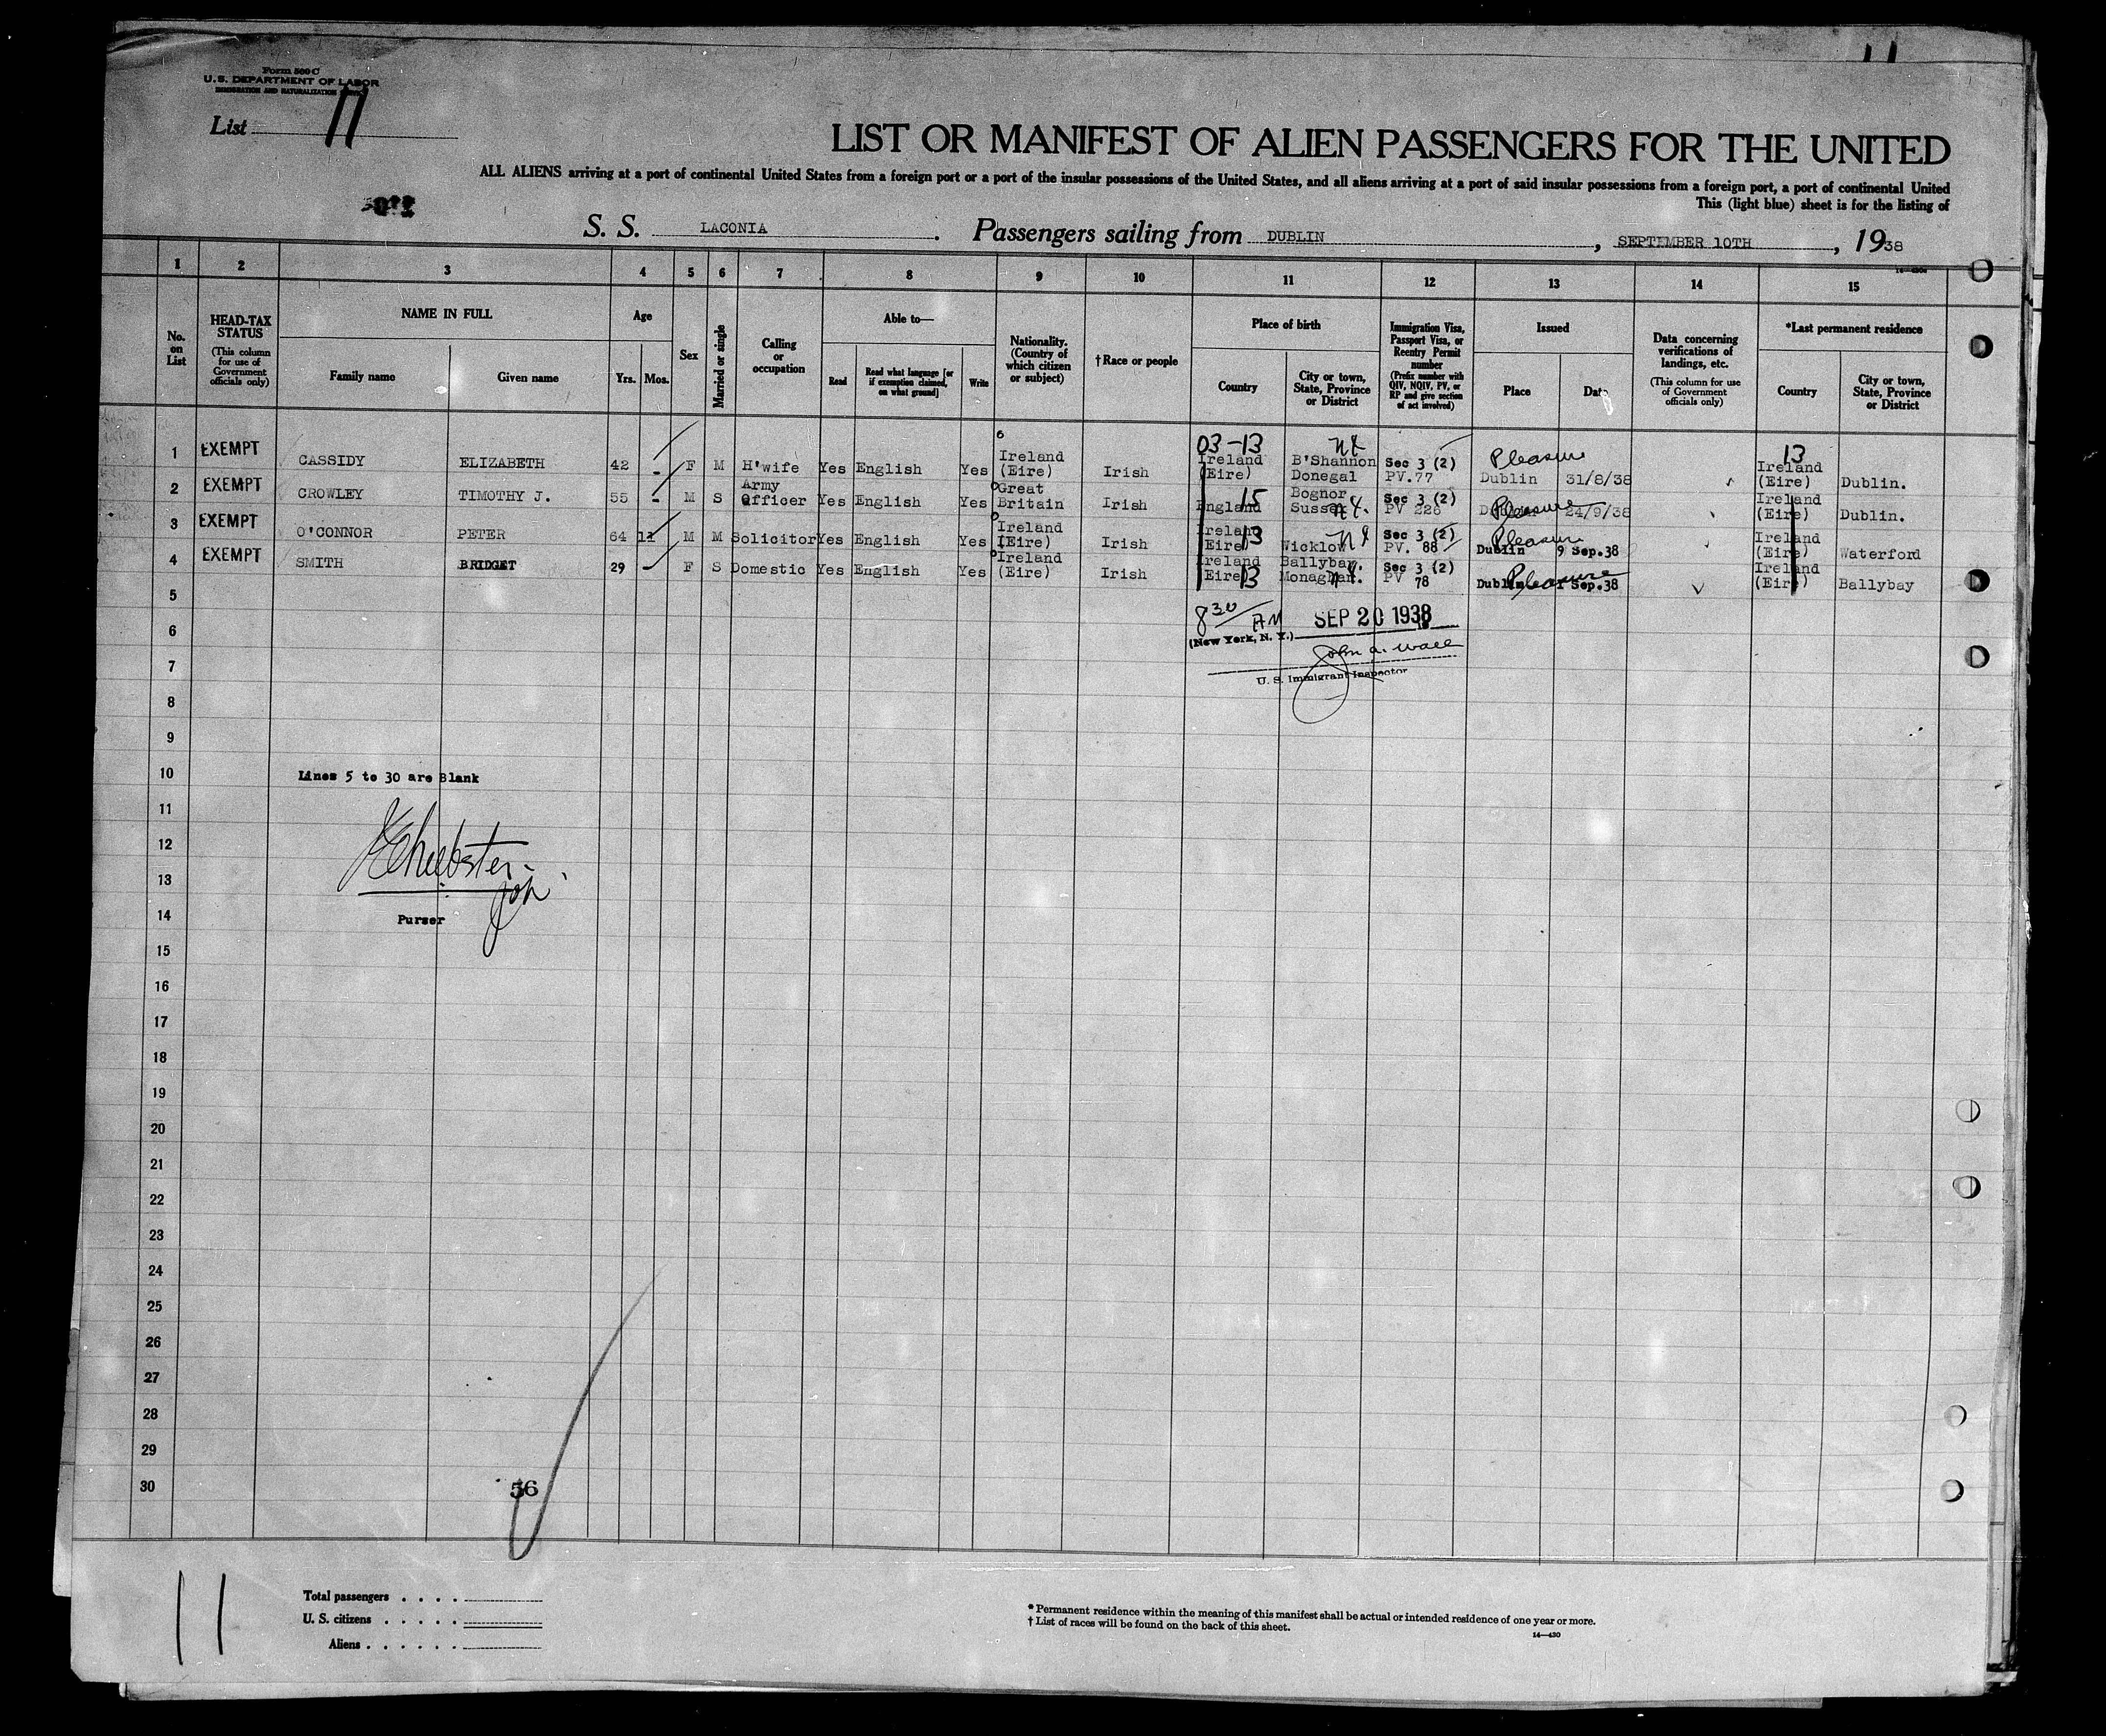 11
Form 500 C
U.S. DEPARTMENT OF LABOR
IMMIGRATION AND NATURALIZATION
List 11
LIST OR MANIFEST OF ALIEN PASSENGERS FOR THE UNITED
ALL ALIENS arriving at a port of continental United States from a foreign port or a port of the insular possessions of the United States, and all aliens arriving at a port of said insular possessions from a foreign port, a port of continental United
This (light blue) sheet is for the listing of
S. S. LACONIA. Passengers sailing from DUBLIN, SEPTEMBER 10TH, 1938
1 2 3 4 5 6 7 8 9 10 11 12 13 14 15
No. on List
HEAD-TAX STATUS (This column for use of Government officials only)
NAME IN FULL
Family name
Given name
Age
Yrs. Mos.
Sex
Married or single
Calling or occupation
Able to—
Read
Read what language [or if exemption claimed, on what ground]
Write
Nationality. (Country of which citizen or subject)
†Race or people
Place of birth
Country
City or town, State, Province or District
Immigration Visa, Passport Visa, or Reentry Permit number (Prefix number with QIV, NQIV, PV, or RP and give section of act involved)
Issued
Place
Date
Data concerning verifications of landings, etc. (This column for use of Government officials only)
*Last permanent residence
Country
City or town, State, Province or District
03-13 Pleasure 13
1 EXEMPT CASSIDY ELIZABETH 42 - F M H'wife Yes English Yes Ireland (Eire) Irish Ireland (Eire) B'Shannon Donegal Sec 3 (2) PV.77 Dublin 31/8/38 Ireland (Eire) Dublin.
2 EXEMPT CROWLEY TIMOTHY J. 55 - M S Army Officer Yes English Yes Great Britain Irish England 15 Bognor Sussex Sec 3 (2) PV 226 Pleasure 24/9/38 Ireland (Eire) Dublin.
3 EXEMPT O'CONNOR PETER 64 11 M M Solicitor Yes English Yes Ireland (Eire) Irish Ireland Eire 13 Wicklow Sec 3 (2) PV. 88 Pleasure Dublin 9 Sep.38 Ireland (Eire) Waterford
4 EXEMPT SMITH BRIDGET 29 - F S Domestic Yes English Yes Ireland (Eire) Irish Ireland Eire 13 Ballybay. Monaghan. Sec 3 (2) PV 78 Dublin Pleasure 1 Sep.38 Ireland (Eire) Ballybay
5
6
8 30/AM SEP 20 1938
(New York, N. Y.)
John A. Wall
U. S. Immigrant Inspector
7
8
9
10
Lines 5 to 30 are Blank
11
12
13
14
Purser
15
16
17
18
19
20
21
22
23
24
25
26
27
28
29
30
56
11
Total passengers . . . .
U. S. citizens . . . . .
Aliens . . . . . .
* Permanent residence within the meaning of this manifest shall be actual or intended residence of one year or more.
† List of races will be found on the back of this sheet.
14—430